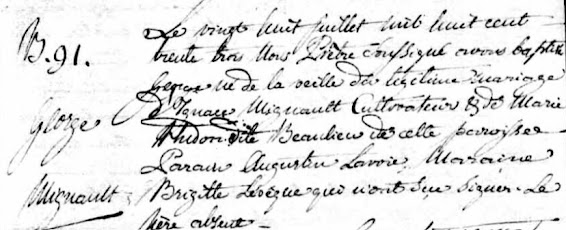 B. 91.
George
Mignault
Le vingt huit juillet mil huit cent
trente trois Nous Prêtre soussigné avons baptisé
George né de la veille du légitime mariage
d'Ignace Mignault Cultivateur & de Marie
Hudon dite Beaulieu de cette paroisse
Parain Augustin Lavoie, Maraine
Brigitte Levêque qui n'ont su signer. Le
Père absent -